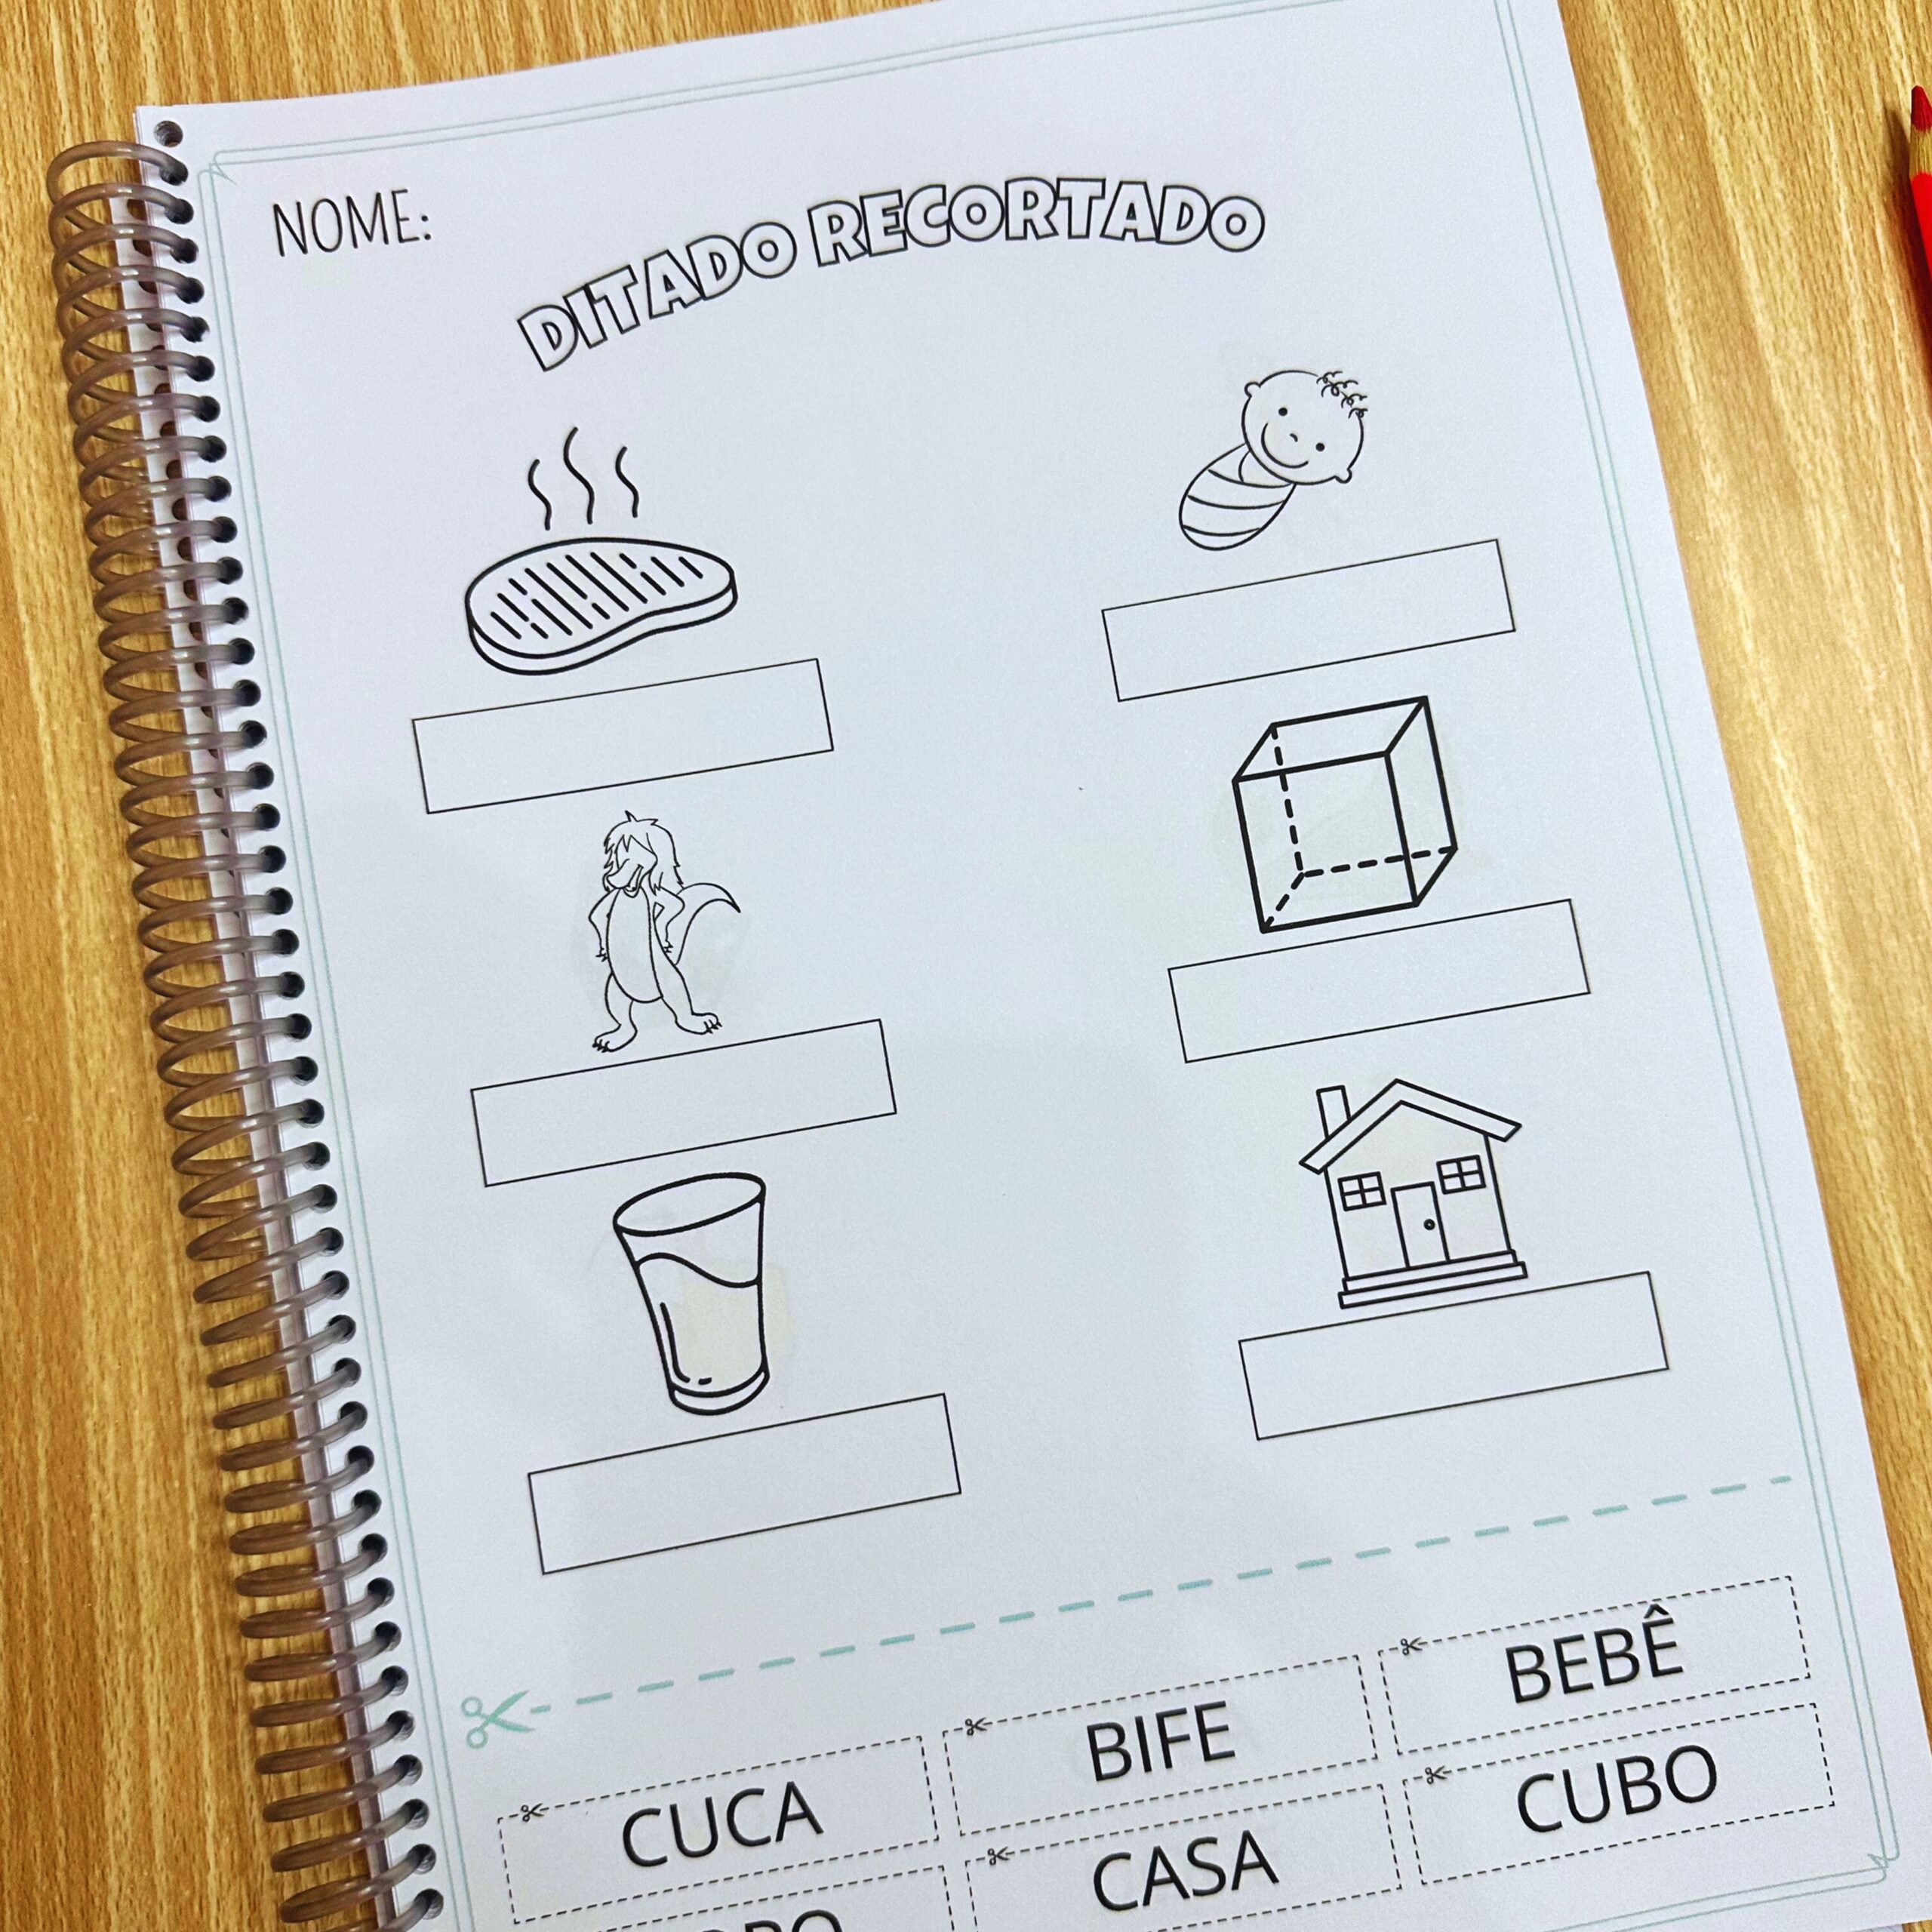 NOME:
DITADO RECORTADO
CUCA
BIFE
BEBÊ
CASA
CUBO